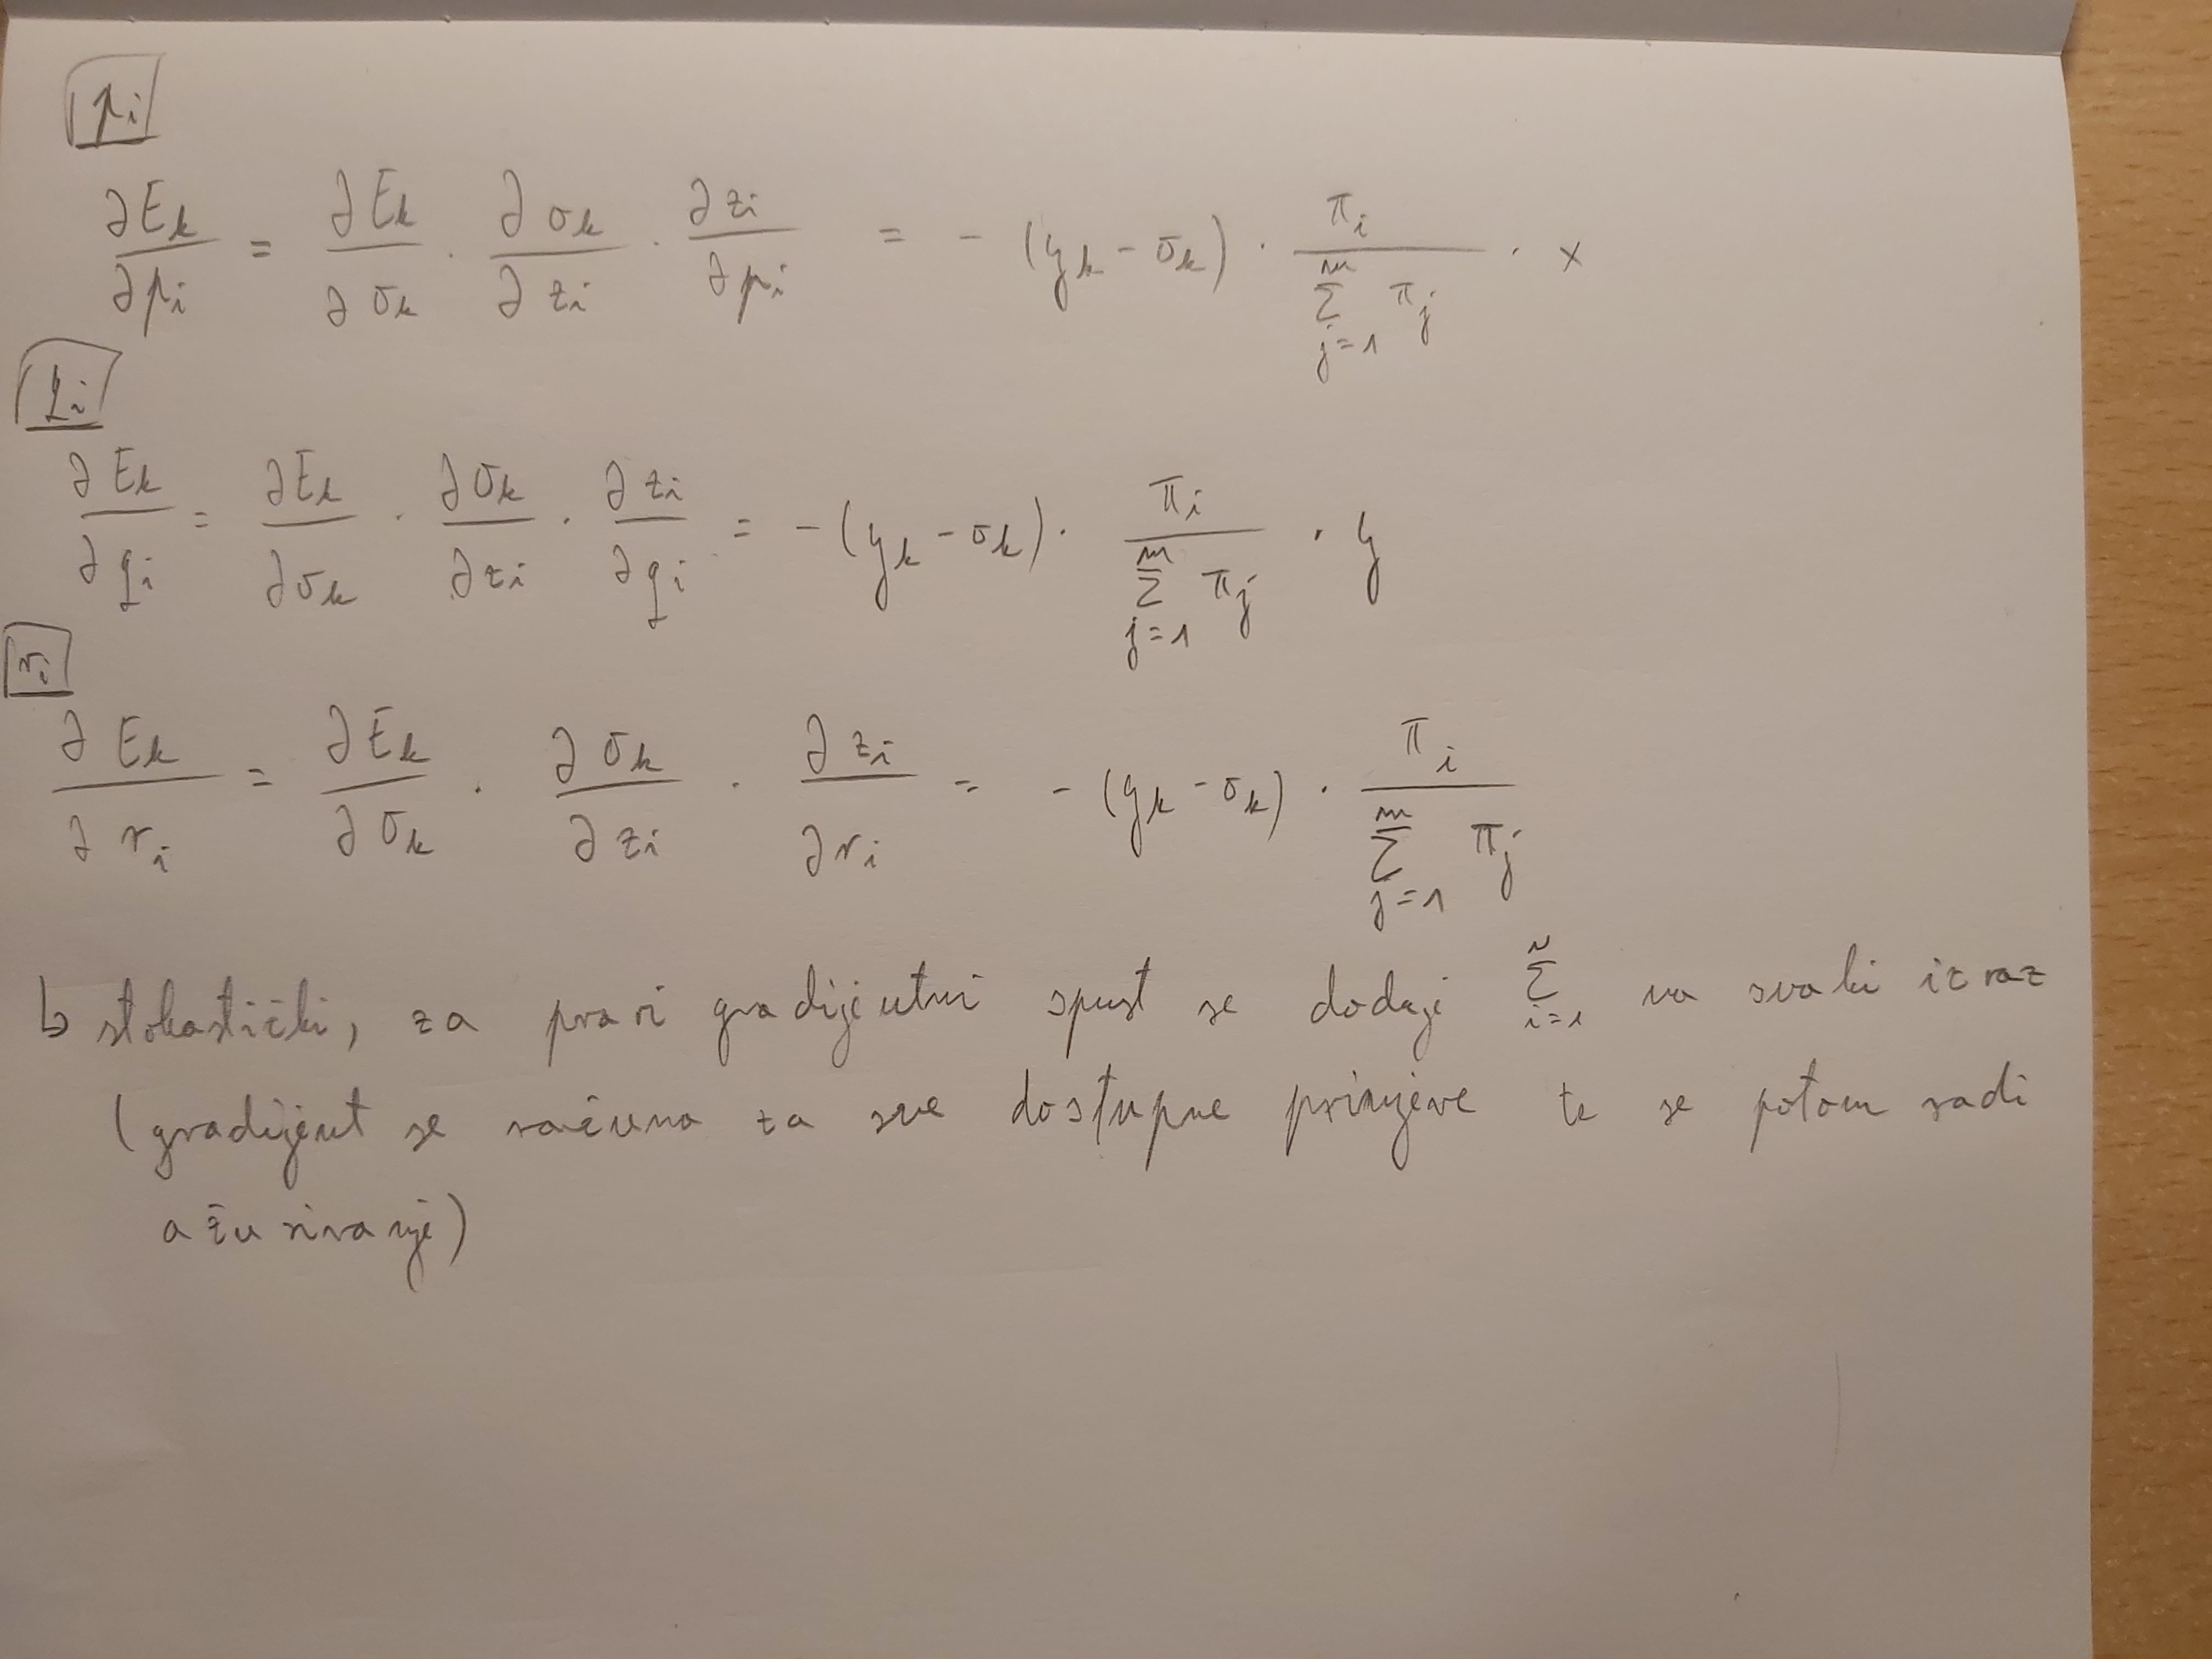 pᵢ
∂Eₖ/∂pᵢ = ∂Eₖ/∂σₖ · ∂σₖ/∂zᵢ · ∂zᵢ/∂pᵢ = - (yₖ - σₖ) · πᵢ / ∑_{j=1}^{m} πⱼ · x
qᵢ
∂Eₖ/∂qᵢ = ∂Eₖ/∂σₖ · ∂σₖ/∂zᵢ · ∂zᵢ/∂qᵢ = - (yₖ - σₖ) · πᵢ / ∑_{j=1}^{m} πⱼ · y
rᵢ
∂Eₖ/∂rᵢ = ∂Eₖ/∂σₖ · ∂σₖ/∂zᵢ · ∂zᵢ/∂rᵢ = - (yₖ - σₖ) · πᵢ / ∑_{j=1}^{m} πⱼ
↳ stohastički, za pravi gradijentni spust se dodaje ∑_{i=1}^{N} na svaki izraz
(gradijent se računa za sve dostupne primjere te se potom radi
ažuriranje)